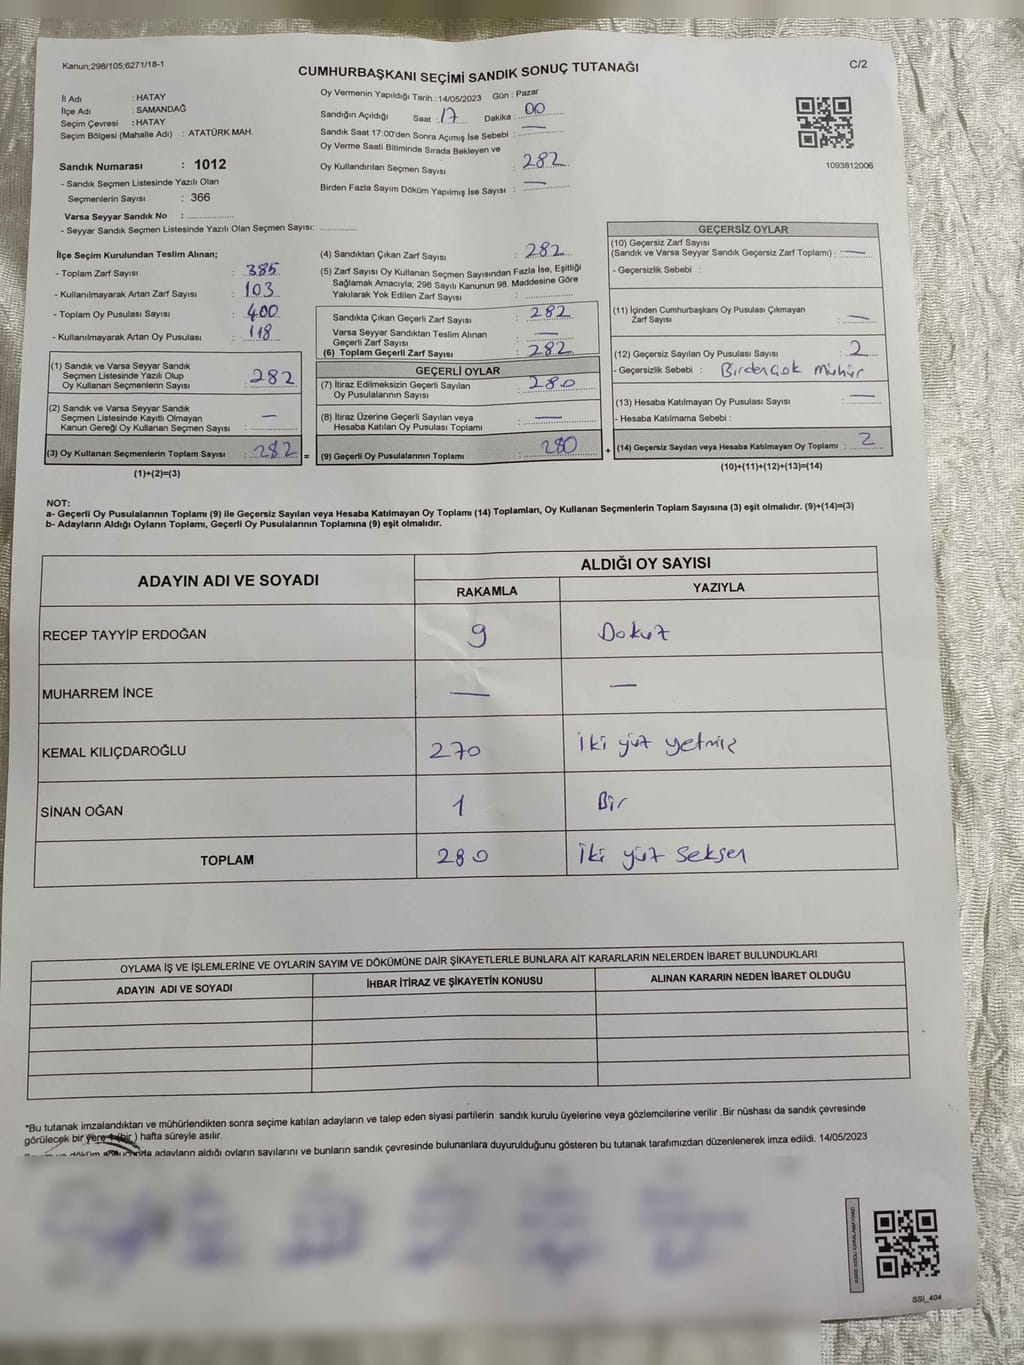 Kanun;298/105;6271/18-1
CUMHURBAŞKANI SEÇİMİ SANDIK SONUÇ TUTANAĞI
C/2
İl Adı : HATAY
İlçe Adı : SAMANDAĞ
Seçim Çevresi : HATAY
Seçim Bölgesi (Mahalle Adı) : ATATÜRK MAH.
Sandık Numarası : 1012
- Sandık Seçmen Listesinde Yazılı Olan
Seçmenlerin Sayısı : 366
Varsa Seyyar Sandık No :
- Seyyar Sandık Seçmen Listesinde Yazılı Olan Seçmen Sayısı:
Oy Vermenin Yapıldığı Tarih : 14/05/2023 Gün : Pazar
Sandığın Açıldığı Saat : 17 Dakika : 00
Sandık Saat 17:00'den Sonra Açımış İse Sebebi : —
Oy Verme Saati Bitiminde Sırada Bekleyen ve
Oy Kullandırılan Seçmen Sayısı : 282
Birden Fazla Sayım Döküm Yapılmış İse Sayısı : —
1093812006
İlçe Seçim Kurulundan Teslim Alınan;
- Toplam Zarf Sayısı : 385
- Kullanılmayarak Artan Zarf Sayısı : 103
- Toplam Oy Pusulası Sayısı : 400
- Kullanılmayarak Artan Oy Pusulası : 118
(1) Sandık ve Varsa Seyyar Sandık
Seçmen Listesinde Yazılı Olup
Oy Kullanan Seçmenlerin Sayısı : 282
(2) Sandık ve Varsa Seyyar Sandık
Seçmen Listesinde Kayıtlı Olmayan
Kanun Gereği Oy Kullanan Seçmen Sayısı : —
(3) Oy Kullanan Seçmenlerin Toplam Sayısı : 282 =
(1)+(2)=(3)
(4) Sandıktan Çıkan Zarf Sayısı : 282
(5) Zarf Sayısı Oy Kullanan Seçmen Sayısından Fazla İse, Eşitliği
Sağlamak Amacıyla; 298 Sayılı Kanunun 98. Maddesine Göre
Yakılarak Yok Edilen Zarf Sayısı :
Sandıkta Çıkan Geçerli Zarf Sayısı : 282
Varsa Seyyar Sandıktan Teslim Alınan
Geçerli Zarf Sayısı : —
(6) Toplam Geçerli Zarf Sayısı : 282
GEÇERLİ OYLAR
(7) İtiraz Edilmeksizin Geçerli Sayılan
Oy Pusulasının Sayısı : 280
(8) İtiraz Üzerine Geçerli Sayılan veya
Hesaba Katılan Oy Pusulası Toplamı : —
(9) Geçerli Oy Pusulalarının Toplamı : 280 +
GEÇERSİZ OYLAR
(10) Geçersiz Zarf Sayısı
(Sandık ve Varsa Seyyar Sandık Geçersiz Zarf Toplamı) : —
- Geçersizlik Sebebi :
(11) İçinden Cumhurbaşkanı Oy Pusulası Çıkmayan
Zarf Sayısı : —
(12) Geçersiz Sayılan Oy Pusulası Sayısı : 2
- Geçersizlik Sebebi : Birden Çok Mühür
(13) Hesaba Katılmayan Oy Pusulası Sayısı : —
- Hesaba Katılmama Sebebi :
(14) Geçersiz Sayılan veya Hesaba Katılmayan Oy Toplamı : 2
(10)+(11)+(12)+(13)=(14)
NOT:
a- Geçerli Oy Pusulalarının Toplamı (9) ile Geçersiz Sayılan veya Hesaba Katılmayan Oy Toplamı (14) Toplamları, Oy Kullanan Seçmenlerin Toplam Sayısına (3) eşit olmalıdır. (9)+(14)=(3)
b- Adayların Aldığı Oyların Toplamı, Geçerli Oy Pusulalarının Toplamına (9) eşit olmalıdır.
ADAYIN ADI VE SOYADI
ALDIĞI OY SAYISI
RAKAMLA YAZIYLA
RECEP TAYYİP ERDOĞAN 9 Dokuz
MUHARREM İNCE — —
KEMAL KILIÇDAROĞLU 270 İki yüz yetmiş
SİNAN OĞAN 1 Bir
TOPLAM 280 İki yüz seksen
OYLAMA İŞ VE İŞLEMLERİNE VE OYLARIN SAYIM VE DÖKÜMÜNE DAİR ŞİKAYETLERLE BUNLARA AİT KARARLARIN NELERDEN İBARET BULUNDUKLARI
ADAYIN ADI VE SOYADI İHBAR İTİRAZ VE ŞİKAYETİN KONUSU ALINAN KARARIN NEDEN İBARET OLDUĞU
*Bu tutanak imzalandıktan ve mühürlendikten sonra seçime katılan adayların ve talep eden siyasi partilerin sandık kurulu üyelerine veya gözlemcilerine verilir .Bir nüshası da sandık çevresinde
görülecek bir yere 1 (bir ) hafta süreyle asılır.
adayların aldığı oyların sayılarını ve bunların sandık çevresinde bulunanlara duyurulduğunu gösteren bu tutanak tarafımızdan düzenlenerek imza edildi. 14/05/2023
SSI_404